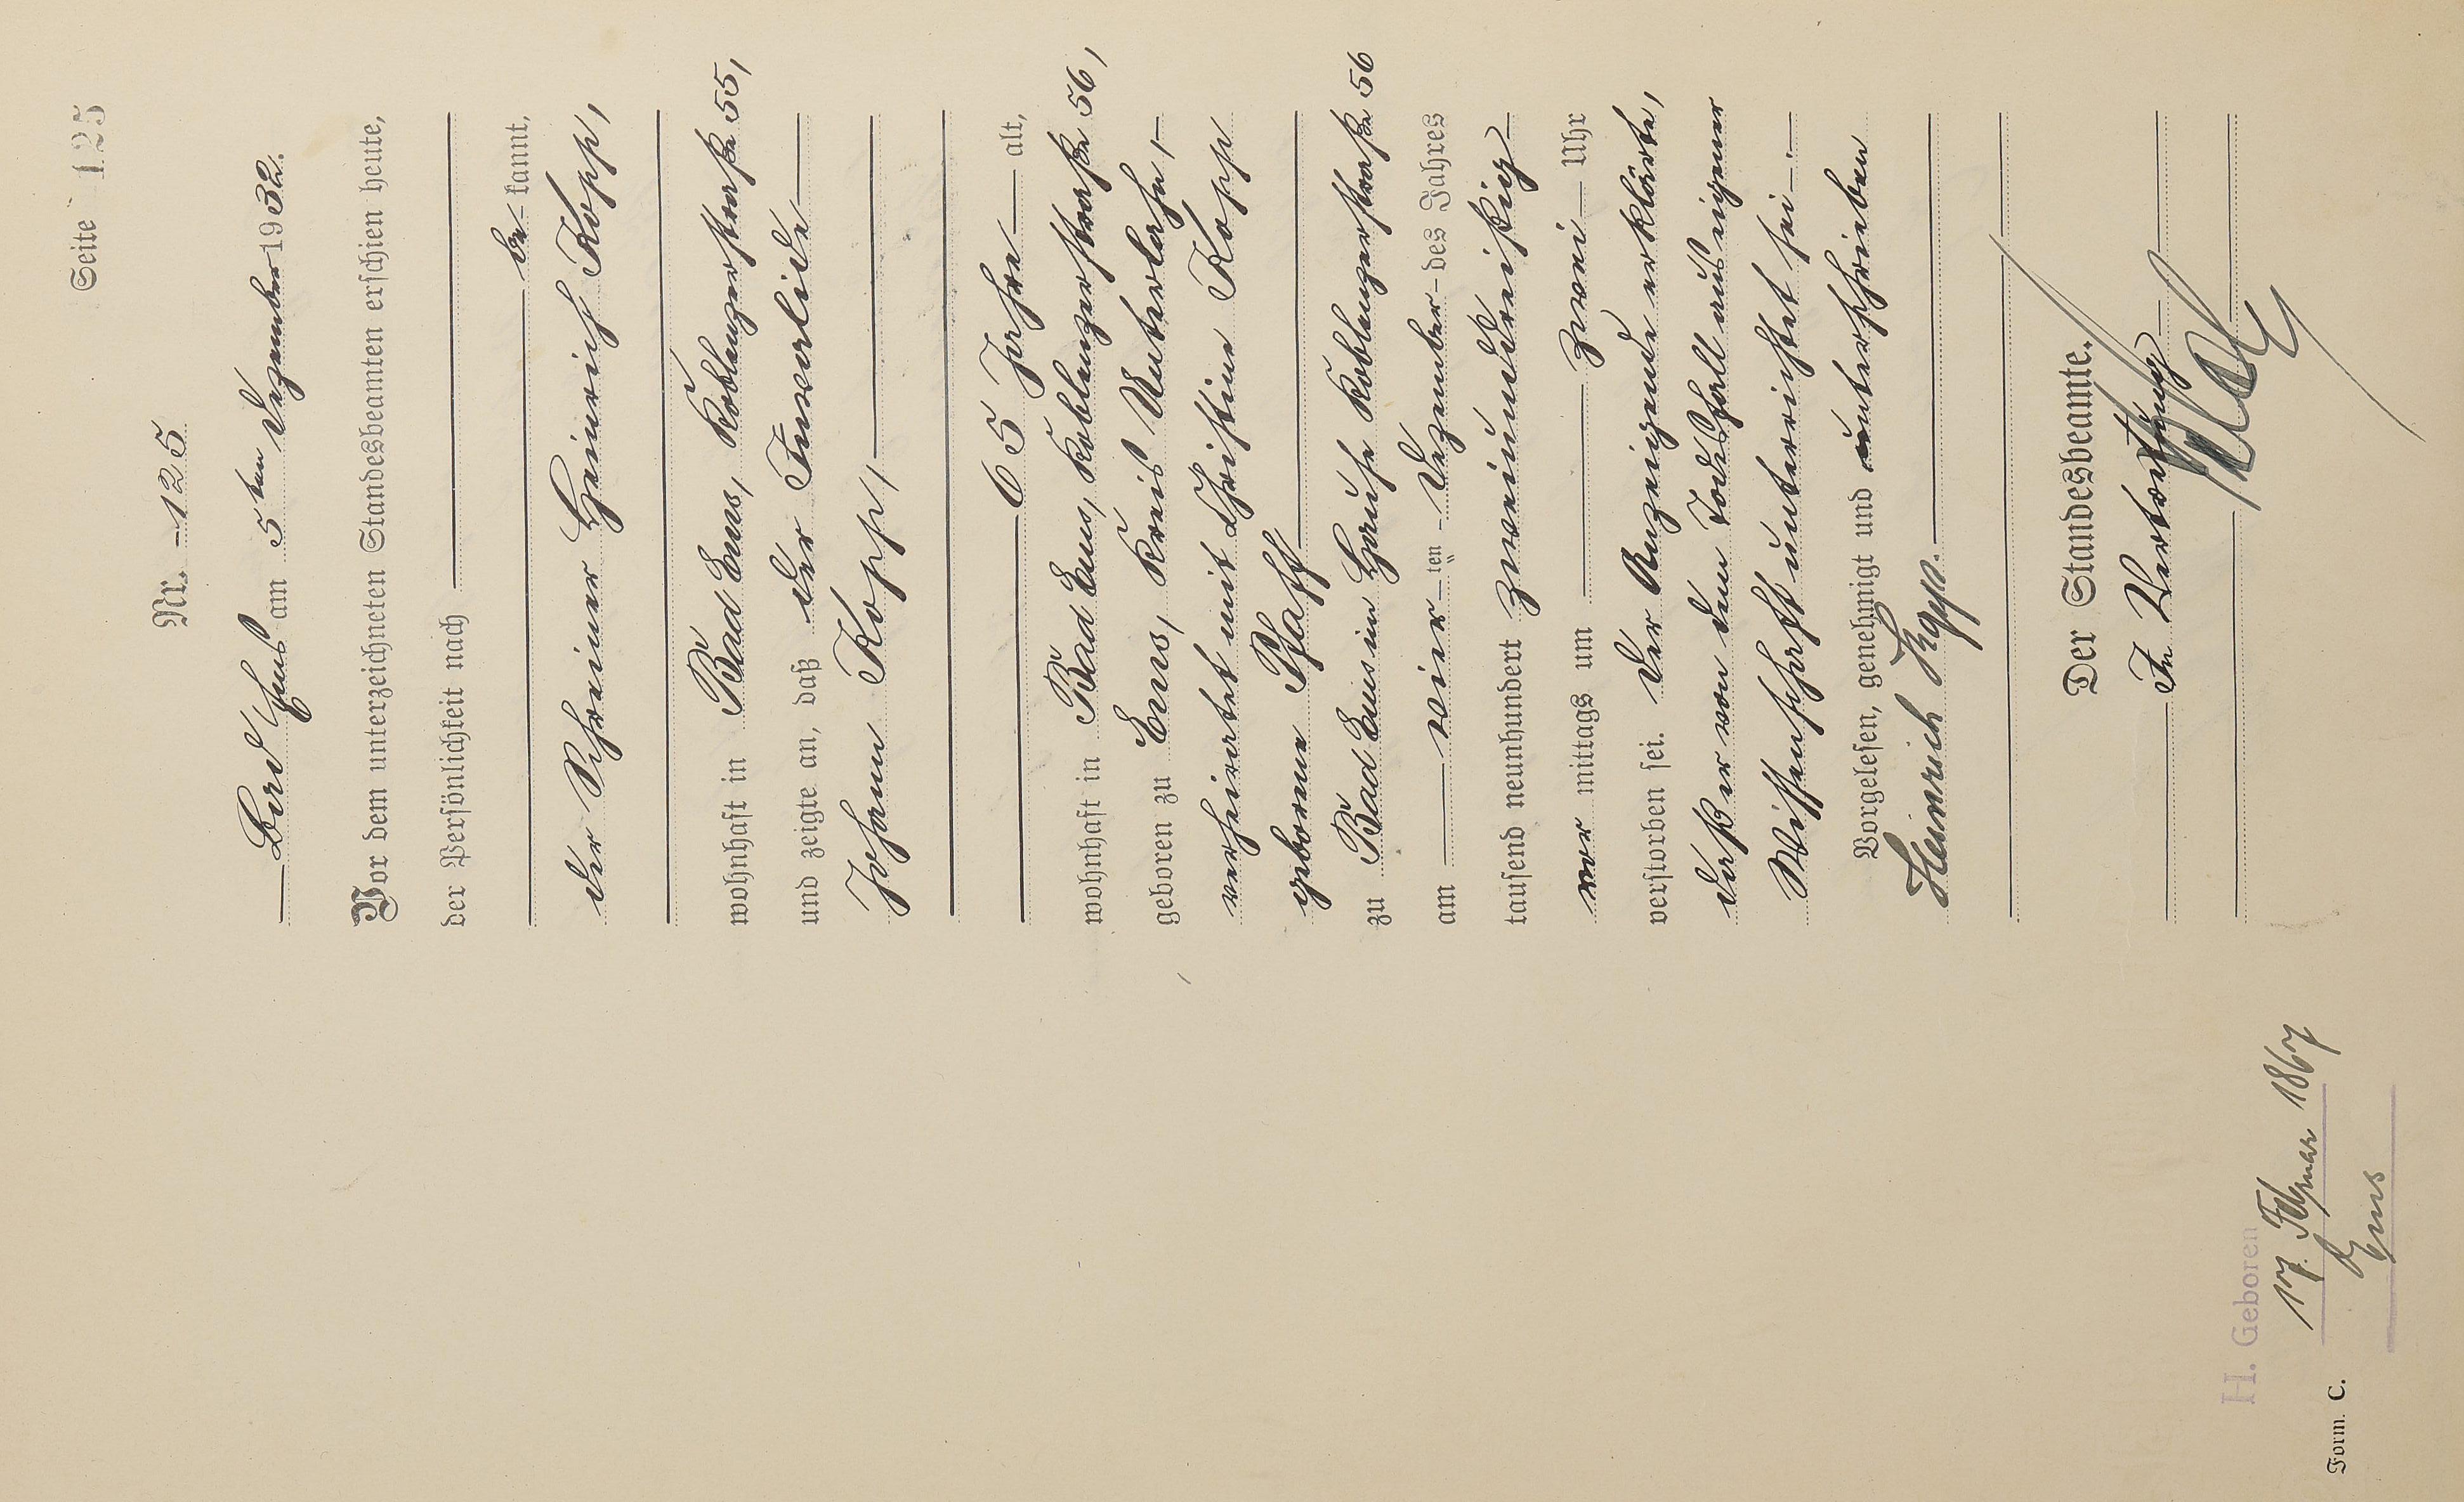 Seite 125
Nr. 125
Bad Ems am 5ten Dezember 1932.
Vor dem unterzeichneten Standesbeamten erschien heute,
der Persönlichkeit nach
be kannt,
der Schreiner Heinrich Kopp,
wohnhaft in Bad Ems, Koblenzerstraße 55,
und zeigte an, daß der Invalide
Johann Kopp,
65 Jahre alt,
wohnhaft in Bad Ems, Koblenzerstraße 56,
geboren zu Ems, Kreis Unterlahn,
verheiratet mit Christine Kopp
geborene Pfaff
zu Bad Ems im Hause Koblenzerstraße 56
am vier ten Dezember des Jahres
tausend neunhundert zweiunddreißig
vor mittags um zwei Uhr
verstorben sei. Der Anzeigende erklärte,
daß er von dem Todesfall aus eigener
Wissenschaft unterrichtet sei.
Vorgelesen, genehmigt und unterschrieben
Heinrich Kopp.
Der Standesbeamte.
In Vertretung
H. Geboren
17. Februar 1867
Ems
Form. C.